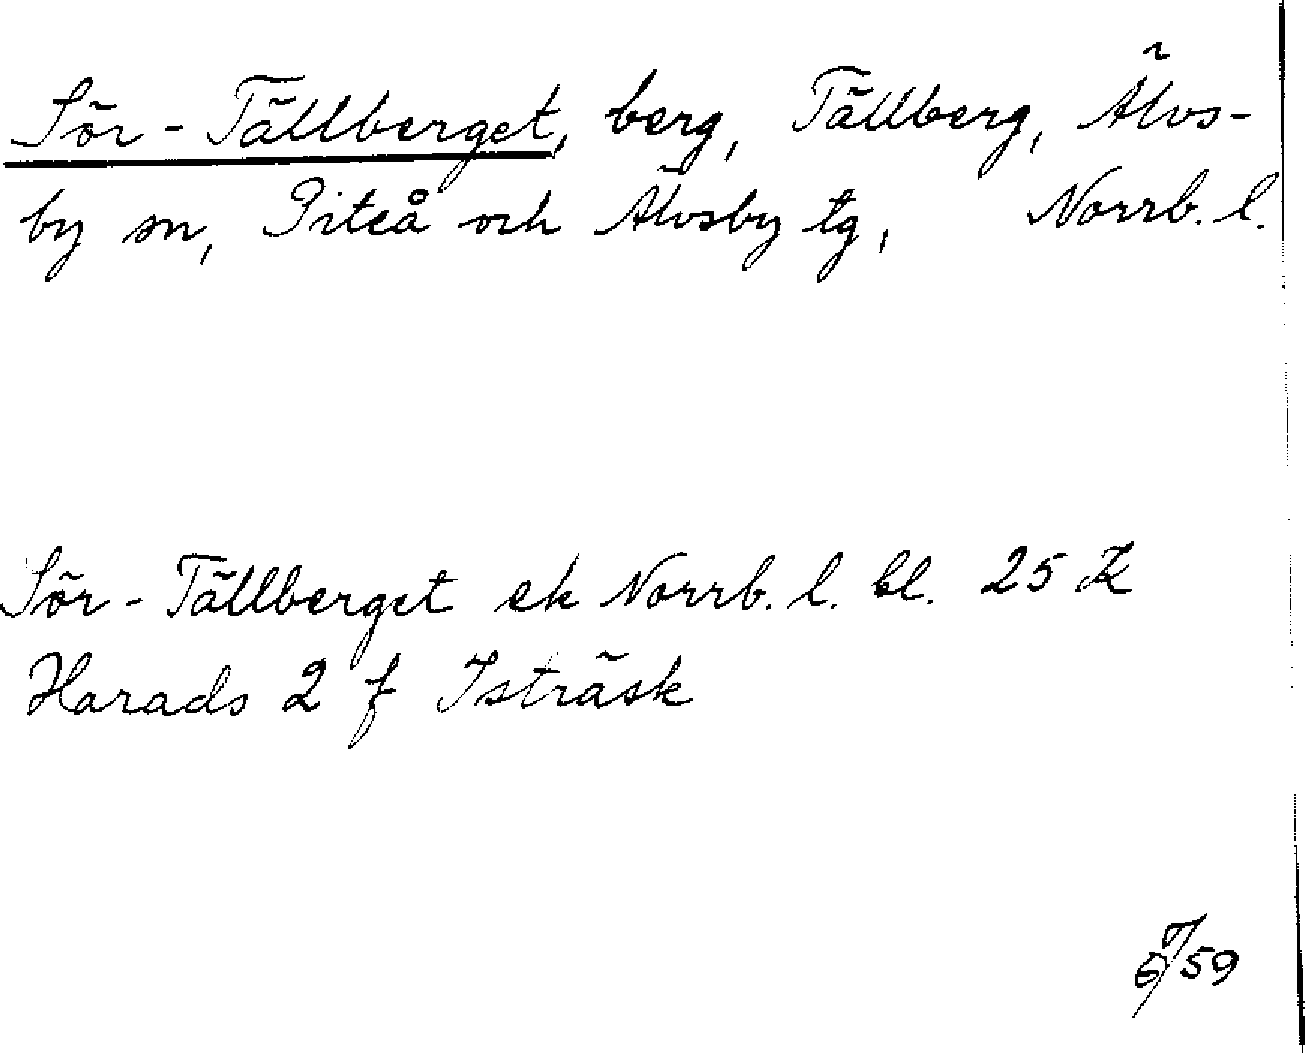 Sör-Tällberget, berg, Tällberg, Älvs-
by sn, Piteå och Älvsby tg, Norrb. l.
Sör-Tällberget ek Norrb. l. bl. 25 K
Harads 2 f Isträsk
6/7 59